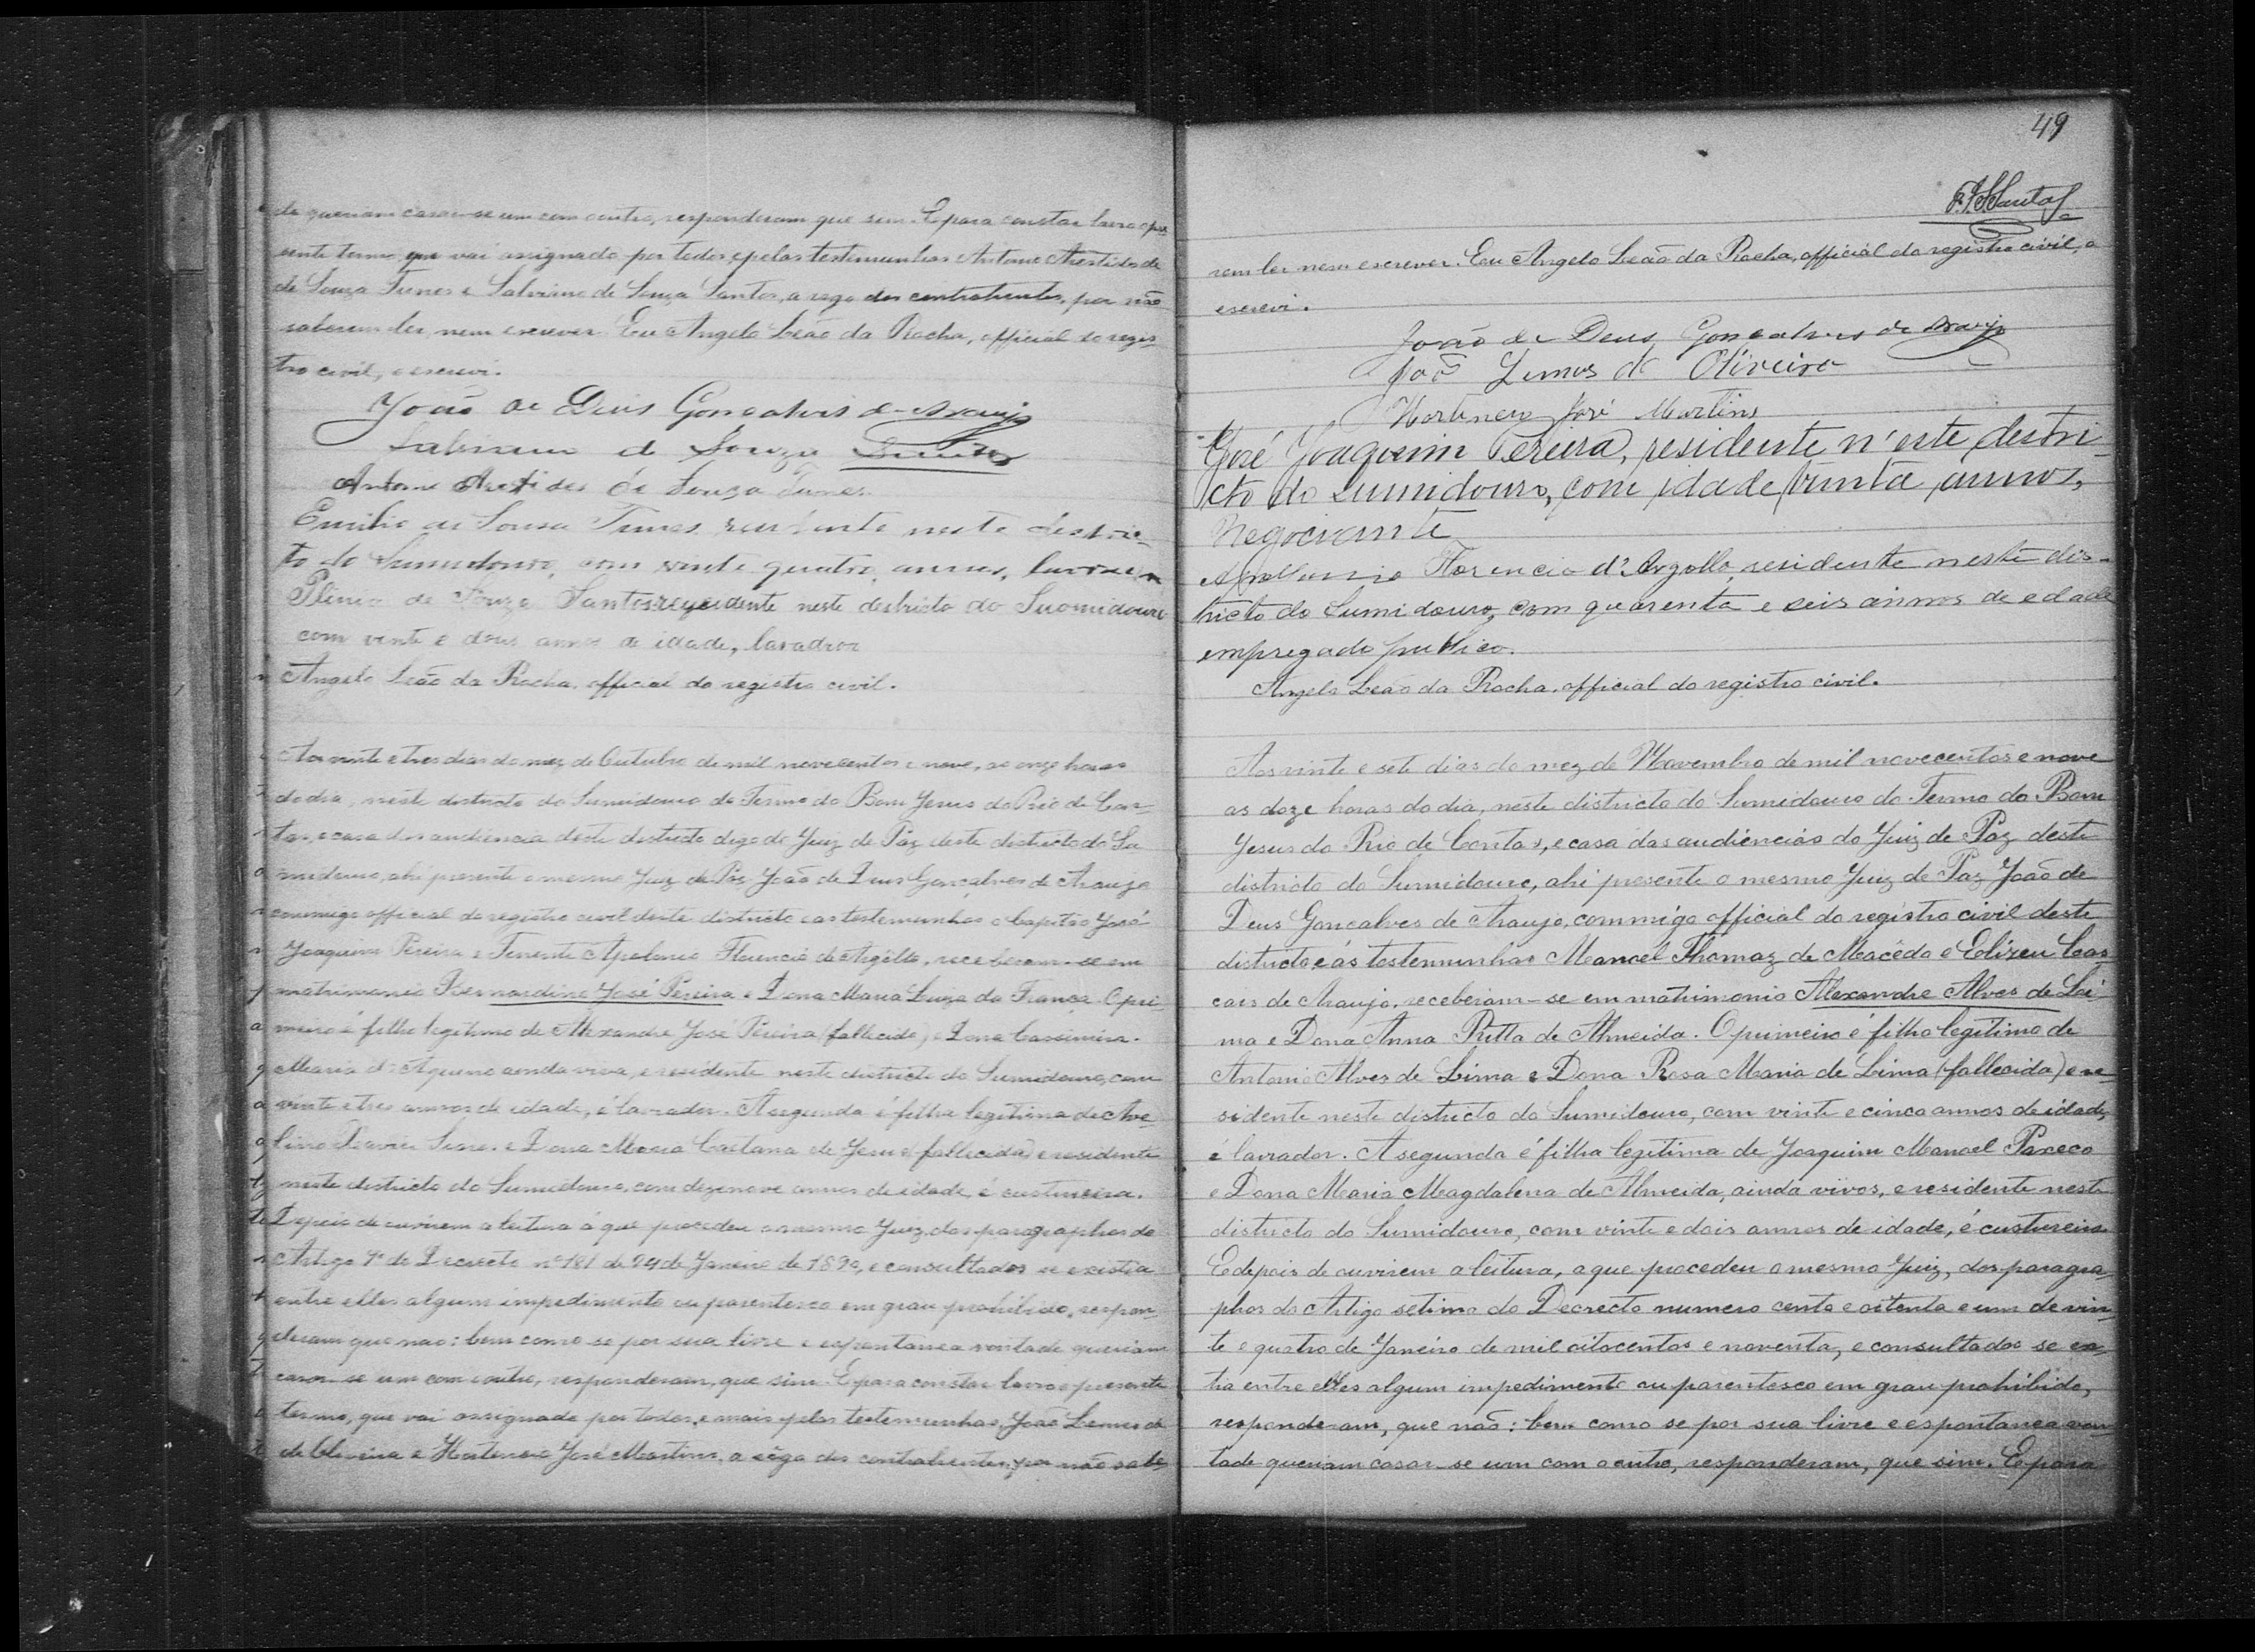 de queriam casar-se um com outro, responderam que sim. E para constar lavro o pre
sente termo que vai assignado por todos e pelas testemunhas Antonio Arestides de
de Souza Tunes e Salviano de Souza Santos, a rogo dos contrahentes, por não
saberem ler, nem escrever. Eu Angelo Leão da Rocha, official do regis-
tro civil, o escrevi.
João de Deus Gonçalvis de Araujo
de Souza
Antonio Arestides de Souza Tunes
Emilio de Sousa Tunes residente neste destric-
to do Sumidouro, com vinte quatro annos, lavrador
Plinio de Souza Santos reyesidente neste destricto do Suomidouro
com vente e dous annos de idade, lavadror
Angelo Leão da Rocha, official do registro civil.
Aos vinte e tres dias do mez de Outubro de mil novecentos e nove, as onze horas
do dia, neste districto do Sumidouro do Termo do Bom Jesus do Rio de Con-
tas, e casa das audiencia deste destricto digo do Juiz de Paz deste districto do Su
midouro, ahi presente o mesmo Juiz de Paz João de Deus Gonçalves de Araujo
commigo official do registro civil deste districto e as testemunhas o Capitão José
Joaquim Pereira e Tenente Apolonio Florencio de Argôllo, receberam-se em
matrimonio Bernardino José Pereira e Dona Maria Luiza da França. O pri-
meiro é filho legitimo de Alexandre José Pereira (fallecido) e Dona Cassimira
Maria d'Aquino ainda viva, e residente neste districto do Sumidouro, com
vinte e tres annos de idade, é lavrador. A segunda é filha legitima de Ave-
lino e Dona Maria Caetana de Jesus (fallecida) e residente
neste districto do Sumidouro, com dezenove annos de idade, é custureira.
Depois de ouvirem a leitura á que procedeu o mesmo Juiz, dos paragraphos do
Artigo 7º do Decrecto nº 181 de 24 de Janeiro de 1890, e consultados se existia
entre elles algum impedimento ou parentesco em grau prohibido, respon-
deram que nao: bem como se por sua livre e espontanea vontade queriam
casar-se um com outro, responderam, que sim. E para constar lavro o presente
termo, que vai assignado por todos, e mais pelas testemunhas, João Lemos de
de Oliveira e Hortencio José Martins, a rôgo dos contrahentes, por não sabe-
49
rem ler nem escrever. Eu Angelo Leão da Rocha, official do registro civil, o
escrevi.
João de Deus Gonçalvis de Araujo
João Lemos de Oliveira
Hortencio José Martins
José Joaquim Pereira, residente n'este destri-
cto do Sumidouro, com idade trinta annos,
Negociante
Florencio d'Argollo, residente neste dis-
tricto do Sumidouro, com quarenta e seis annos de edade
empregado publico.
Angelo Leão da Rocha, official do registro civil.
Aos vinte e sete dias do mez de Novembro de mil novecentos e nove
as doze horas do dia, neste districto do Sumidouro do Termo do Bom
Jesus do Rio de Contas, e casa das audiencias do Juiz de Paz deste
districto do Sumidouro, ahi presente o mesmo Juiz de Paz João de
Deus Goncalves de Araujo, commigo official do registro civil deste
districto e ás testemunhas Manoel Thomaz de Macêdo e Elizeu Cas
caes de Araujo, receberam-se em matrimonio Alexandre Alves de Lei-
ma e Dona Anna Ritta de Almeida. O primeiro é filho legitimo de
Antonio Alves de Lima e Dona Rosa Maria de Lima (fallecida) e re-
sidente neste districto do Sumidouro, com vinte e cinco annos de idade,
é lavrador. A segunda é filha legitima de Joaquim Manoel Paxeco
e Dona Maria Magdalena de Almeida, ainda vivos, e residente neste
districto do Sumidouro, com vinte e dois annos de idade, é custureira
E depois de ouvirem a leitura, a que procedeu o mesmo Juiz, dos paragra-
phos do Artigo setimo do Decrecto numero cento e oitenta e um de vin-
te e quatro de Janeiro de mil oitocentos e noventa, e consultados se exs-
tia entre elles algum impedimento ou parentesco em grau prohibido,
responderam, que não: bem como se por sua livre e espontanea von
tade queriam casar-se um com o outro, responderam, que sim. E para